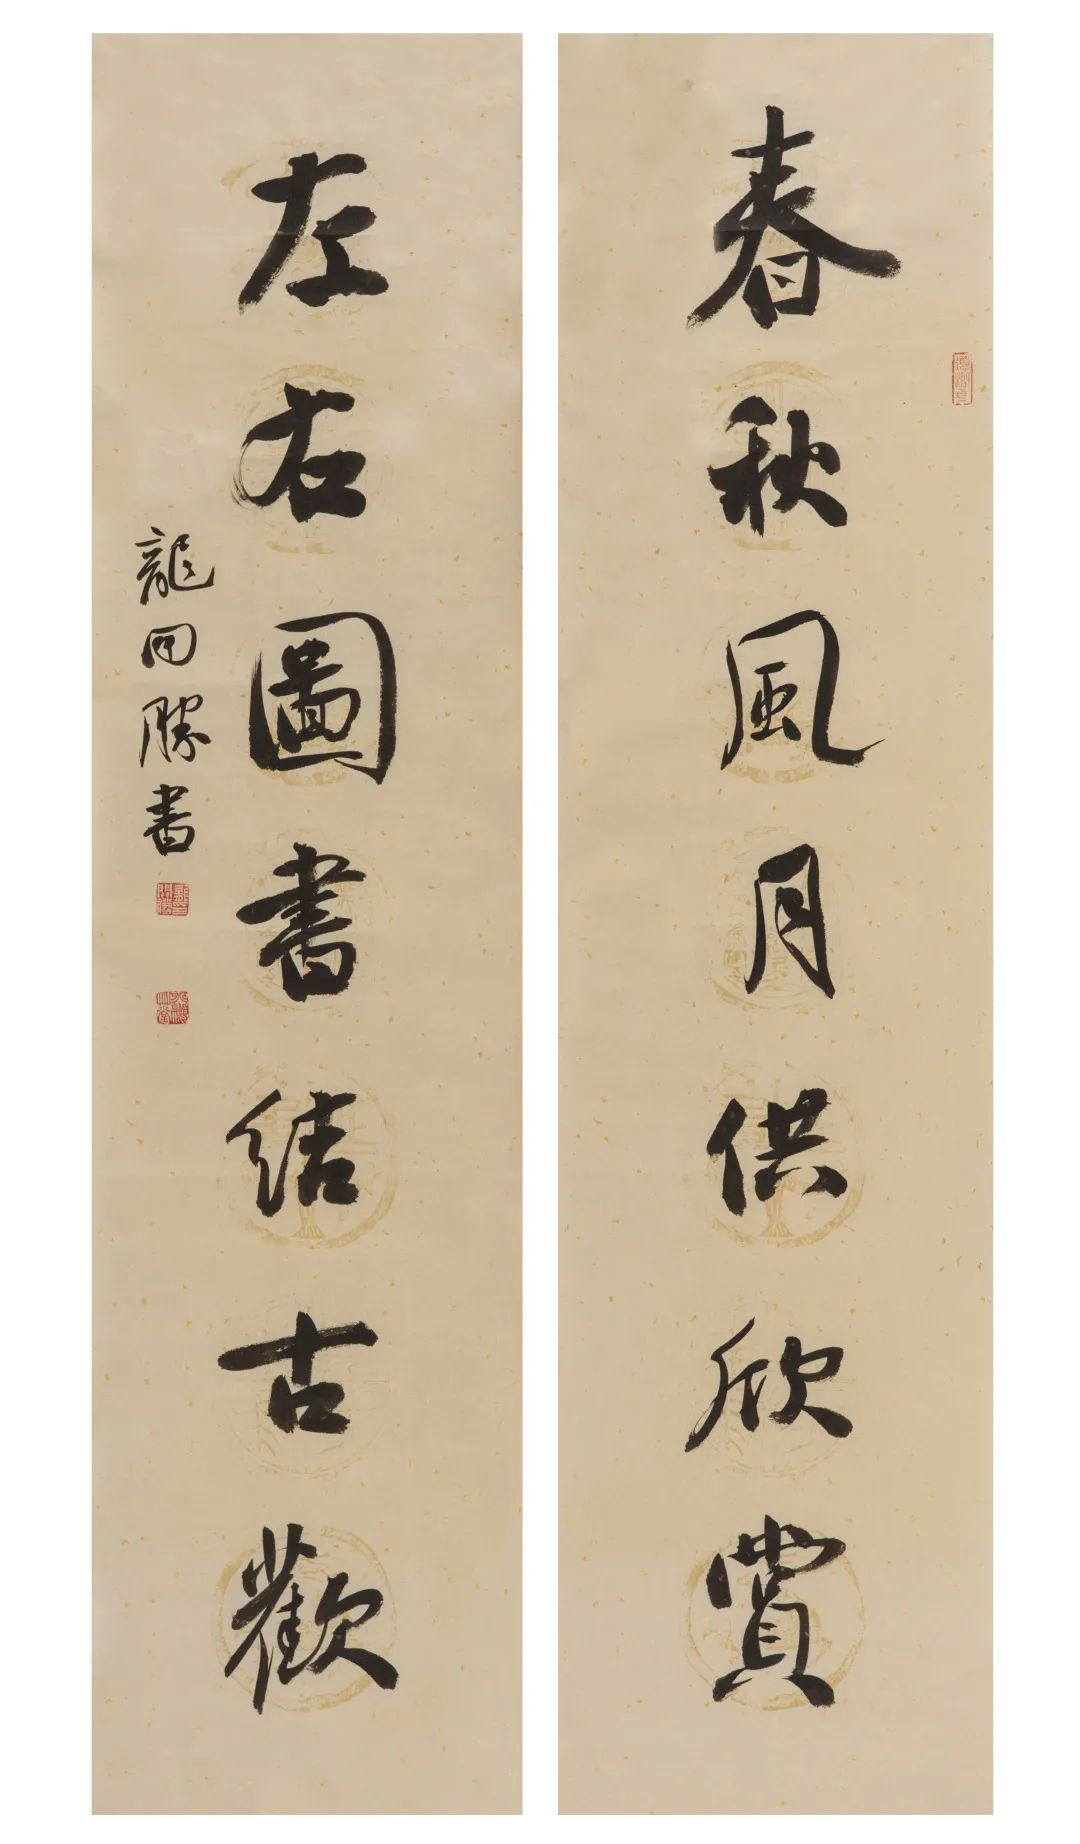 春秋風月供欣賞
左右圖書結古歡
龍開勝書